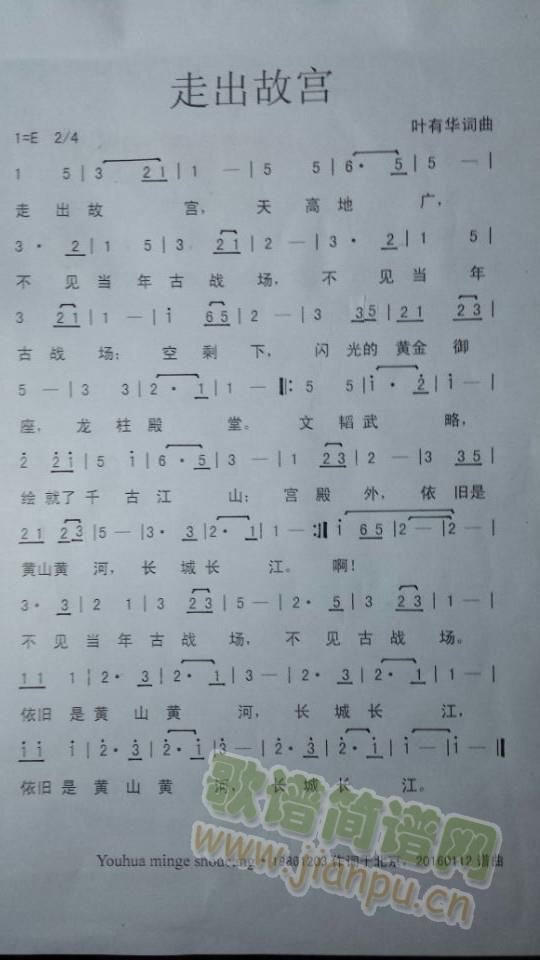 走出故宫
叶有华词曲
1=E 2/4
1 5 | 3 21 | 1 — | 5 5 | 6· 5 | 5 — |
走 出 故 宫， 天 高 地 广，
3· 2 | 1 5 | 3 21 | 2 — | 3· 2 | 1 5 |
不 见 当 年 古 战 场， 不 见 当 年
3 21 | 1 — | i 65 | 2 — | 3 35 | 21 23 |
古 战 场； 空 剩 下， 闪 光的 黄金 御
5 — | 3 3 | 2· 1 | 1 — |: 5 5 | i· 2 | i — |
座， 龙 柱 殿 堂。 文 韬 武 略，
2 2i | 5 i | 6· 5 | 3 — | 1 23 | 2 — | 3 35 |
绘 就了 千 古 江 山； 宫 殿 外， 依 旧是
21 23 | 5 — | 3· 3 | 2· 1 | 1 — :| i 65 | 2 — | 2 — |
黄山黄 河， 长 城 长 江。 啊！
3· 3 | 2 1 | 3 23 | 5 — | 2· 5 | 3 23 | 1 — |
不 见 当 年 古 战 场， 不 见 古 战 场。
11 1 | 2· 3 | 2· 1 | 3 — | 2· 3 | 2· 1 | 1 — |
依旧 是 黄 山 黄 河， 长 城 长 江，
ii i | 2· 3 | 2· i | 3 — | 2· 3 | 2· i | i — ‖
依旧 是 黄 山 黄 河， 长 城 长 江。
歌谱简谱网
www.jianpu.cn
Youhua minge 作词于北京，20160112 谱曲